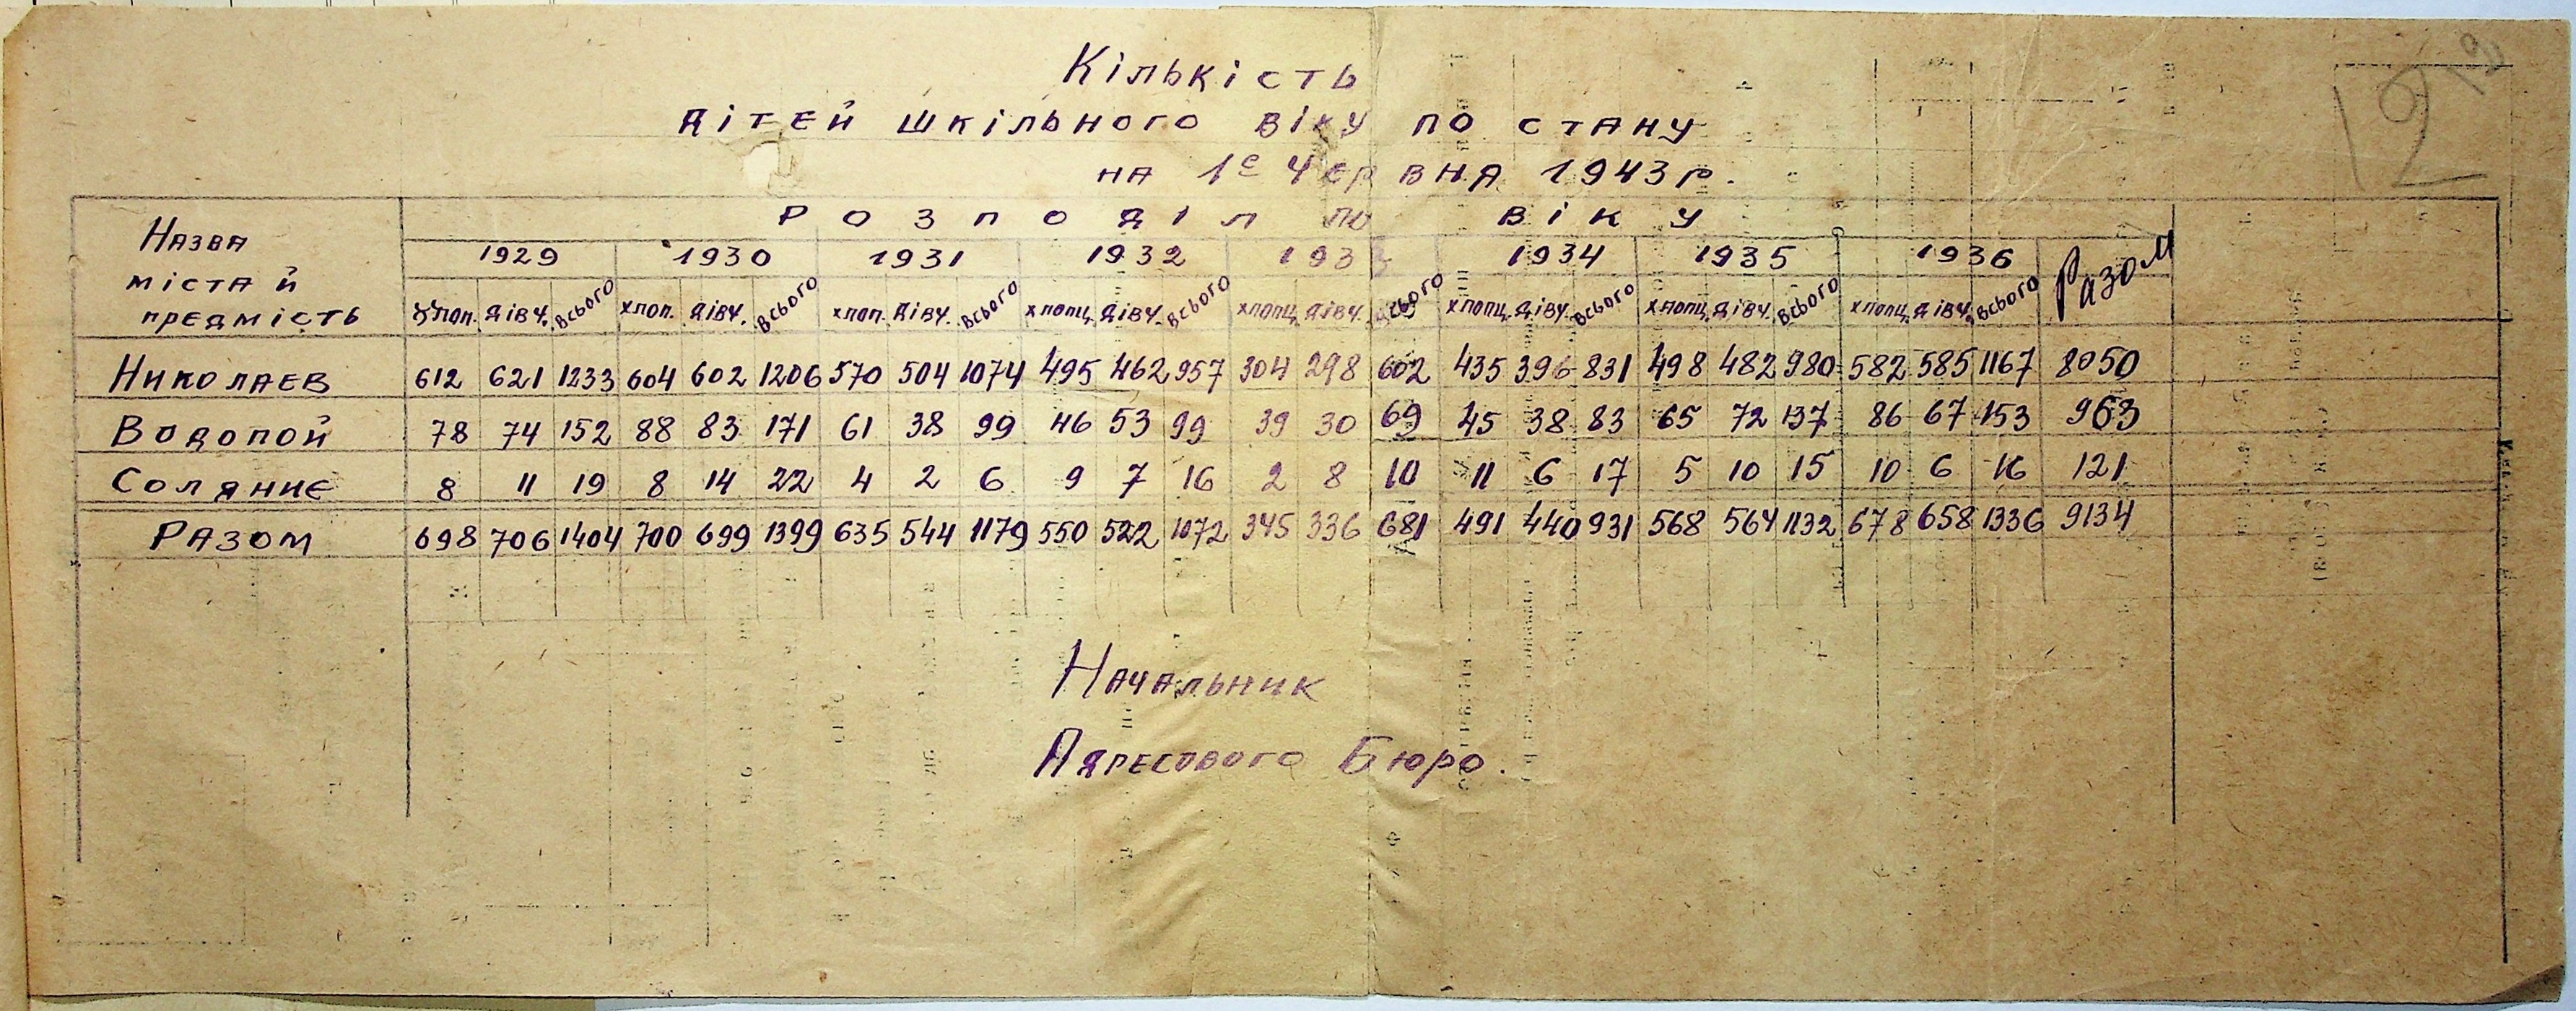 12
Кількість
дітей шкільного віку по стану
на 1е Червня 1943 р.
Назва міста й предмість
Розподіл по віку
1929 1930 1931 1932 1933 1934 1935 1936 Разом
хлоп. дівч. всього хлоп. дівч. всього хлоп. дівч. всього хлопц. дівч. всього хлопц. дівч. всього хлопц. дівч. всього хлопц. дівч. всього хлопц. дівч. всього
Николаев 612 621 1233 604 602 1206 570 504 1074 495 462 957 304 298 602 435 396 831 498 482 980 582 585 1167 8050
Водопой 78 74 152 88 83 171 61 38 99 46 53 99 39 30 69 45 38 83 65 72 137 86 67 153 963
Соляниє 8 11 19 8 14 22 4 2 6 9 7 16 2 8 10 11 6 17 5 10 15 10 6 16 121
Разом 698 706 1404 700 699 1399 635 544 1179 550 522 1072 345 336 681 491 440 931 568 564 1132 678 658 1336 9134
Начальник
Адресового Бюро.